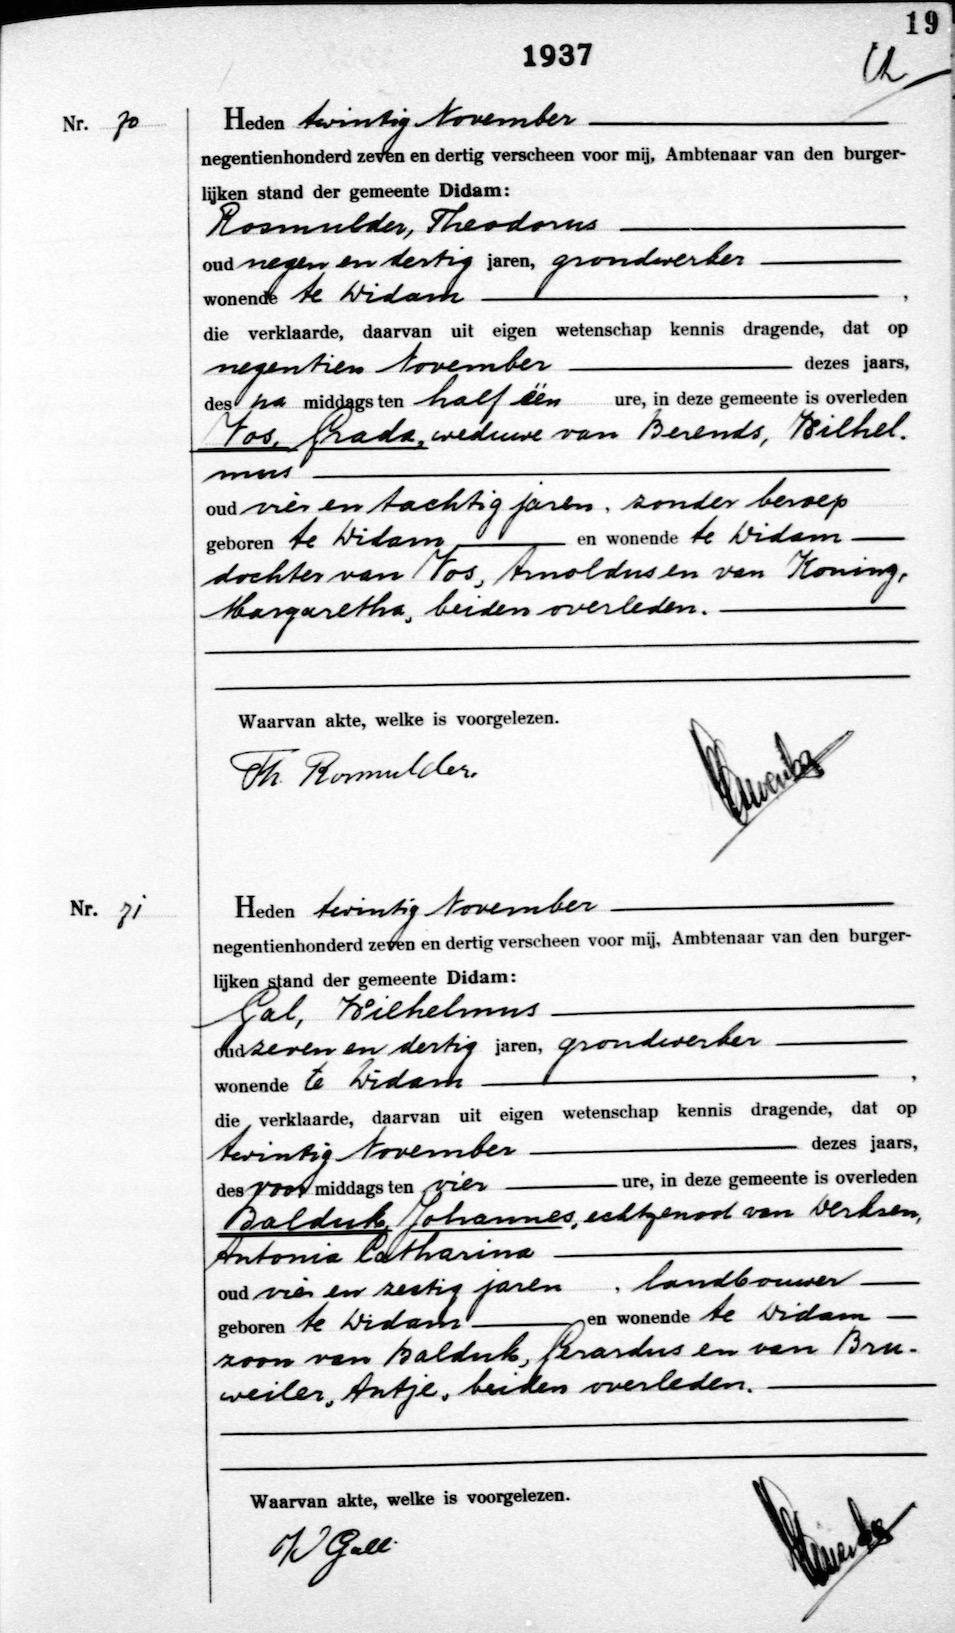 19
1937
Nr. 70
Heden twintig November
negentienhonderd zeven en dertig verscheen voor mij, Ambtenaar van den burger-
lijken stand der gemeente Didam:
Rosmulder, Theodorus
oud negen en dertig jaren, grondwerker
wonende te Didam ,
die verklaarde, daarvan uit eigen wetenschap kennis dragende, dat op
negentien November dezes jaars,
des na middags ten half één ure, in deze gemeente is overleden
Vos, Grada, weduwe van Berends, Wilhel.
mus
oud vier en tachtig jaren, zonder beroep
geboren te Didam en wonende te Didam
dochter van Vos, Arnoldus en van Koning,
Margaretha, beiden overleden.
Waarvan akte, welke is voorgelezen.
Th. Rosmulder.
Nr. 71
Heden twintig November
negentienhonderd zeven en dertig verscheen voor mij, Ambtenaar van den burger-
lijken stand der gemeente Didam:
Gal, Wilhelmus
oud zeven en dertig jaren, grondwerker
wonende te Didam ,
die verklaarde, daarvan uit eigen wetenschap kennis dragende, dat op
twintig November dezes jaars,
des voor middags ten vier ure, in deze gemeente is overleden
Balduk, Johannes, echtgenoot van Derksen,
Antonia Catharina
oud vier en zestig jaren, landbouwer
geboren te Didam en wonende te Didam
zoon van Balduk, Gerardus en van Bru-
weiler, Antje, beiden overleden.
Waarvan akte, welke is voorgelezen.
W Gall